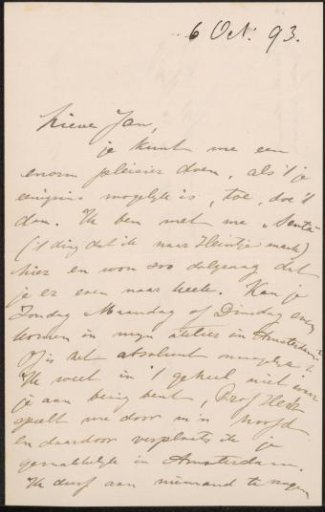 6 Oct. 93.
Lieve Jan,
je kunt me een
enorm pleisier doen, als 't je
eenigsins mogelijk is, toe, doe 't
dan. Ik ben met me „Senta"
('t ding dat ik naar Heintje maak)
hier en won zoo dolgraag dat
je er even naar keek. Kan je
Zondag Maandag of Dinsdag even
komen in mijn atelier in Amsterdam?
Of is het absoluut onmogelijk?
Ik weet in 't geheel niet waar
je aan bezig bent, Prof.
speelt me door m'n hoofd
en daardoor verplaats ik je
gemakkelijk in Amsterdam.
Ik durf aan niemand te vragen